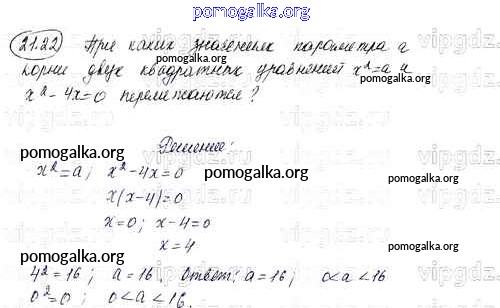 pomogalka.org
21.22 При каких значениях параметра a
корни двух квадратных уравнений x²=a и
x² - 4x=0 перемежаются?
pomogalka.org
Решение:
pomogalka.org
x²=a; x² - 4x=0
pomogalka.org
x(x-4)=0
x=0; x-4=0
x=4
pomogalka.org
4²=16; a=16. Ответ: a=16; 0<a<16
0²=0; 0<a<16.
pomogalka.org